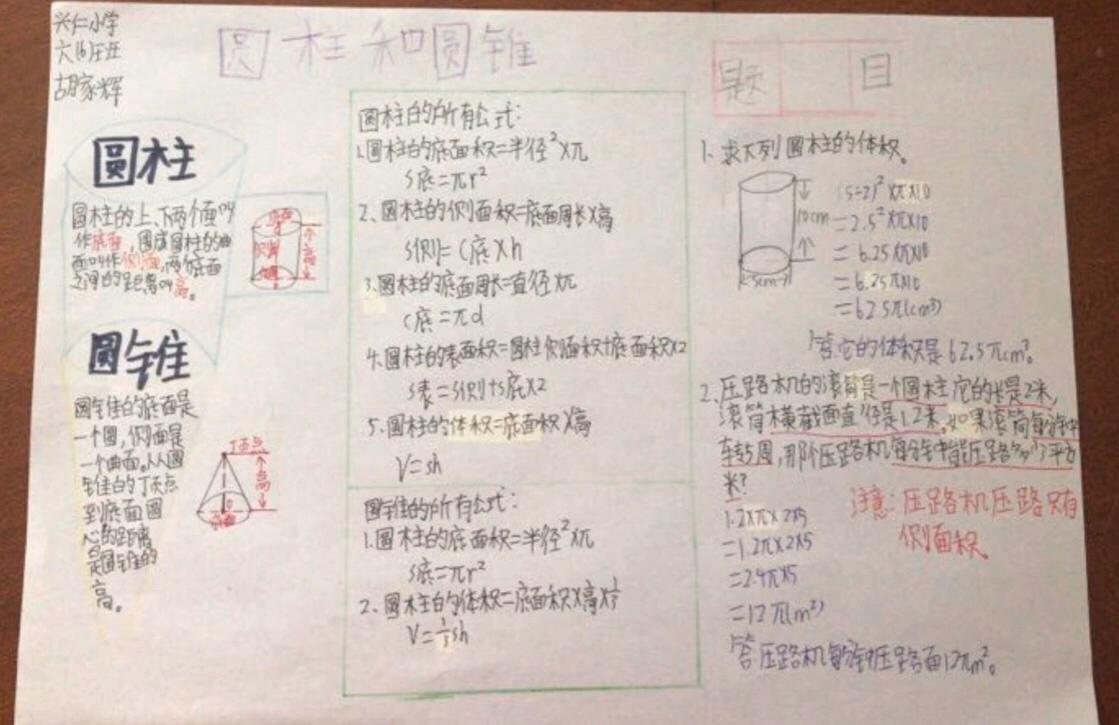 兴仁小学
六(6)班
胡家辉
圆柱和圆锥
圆柱
圆柱的上、下两个面叫
作底面,围成圆柱的曲
面叫作侧面,两个底面
之间的距离叫高。
顶面
侧面
高
圆锥
圆锥的底面是
一个圆,侧面是
一个曲面。从圆
锥的顶点
到底面圆
心的距离
是圆锥的
高。
顶点
高
圆柱的所有公式:
1.圆柱的底面积=半径²×π
S底=πr²
2、圆柱的侧面积=底面周长×高
S侧=C底×h
3、圆柱的底面周长=直径×π
C底=πd
4、圆柱的表面积=圆柱侧面积+底面积×2
S表=S侧+S底×2
5、圆柱的体积=底面积×高
V=sh
圆锥的所有公式:
1.圆柱的底面积=半径²×π
S底=πr²
2、圆柱的体积=底面积×高×⅓
V=⅓sh
题目
1、求下列圆柱的体积。
10cm
5cm
(5÷2)²×π×10
=2.5²×π×10
=6.25×π×10
=6.25π×10
=62.5π(cm³)
答:它的体积是62.5πcm³。
2、压路机的滚筒是一个圆柱,它的长是2米,
滚筒横截面直径是1.2米。如果滚筒每分钟
转5周,那个压路机每分钟能压路多少平方
米?
1.2×π×2×5
=1.2π×2×5
=2.4π×5
=12π(m²)
答:压路机每分钟压路面12πm²。
注意:压路机压路只有
侧面积